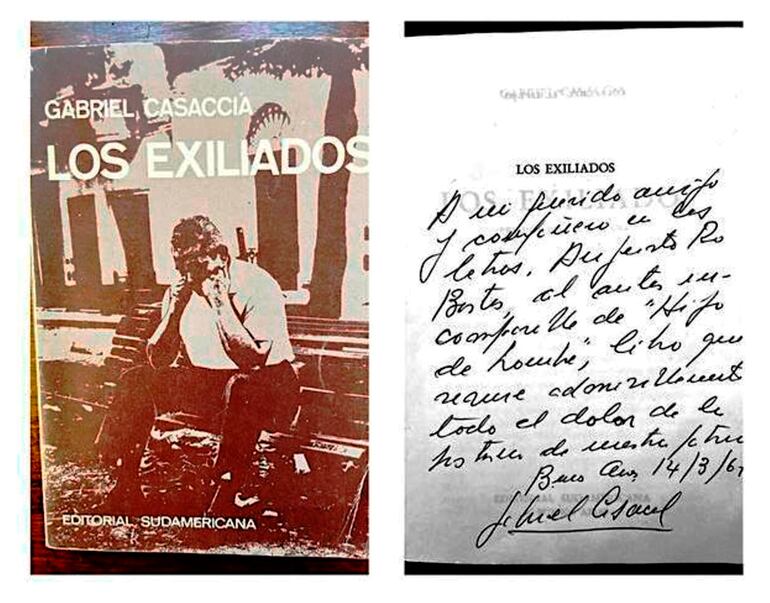 GABRIEL CASACCIA
LOS EXILIADOS
EDITORIAL SUDAMERICANA
LOS EXILIADOS
LOS EXILIADOS
A mi querido amigo
y compañero en las
letras, Augusto Ro
Bastos, al autor in-
comparable de "Hijo
de hombre", libro que
resume admirablemente
todo el dolor de la
historia de nuestra patria
Buenos Aires 14/3/6
EDITORIAL SUDAMERICANA
Gabriel Casaccia